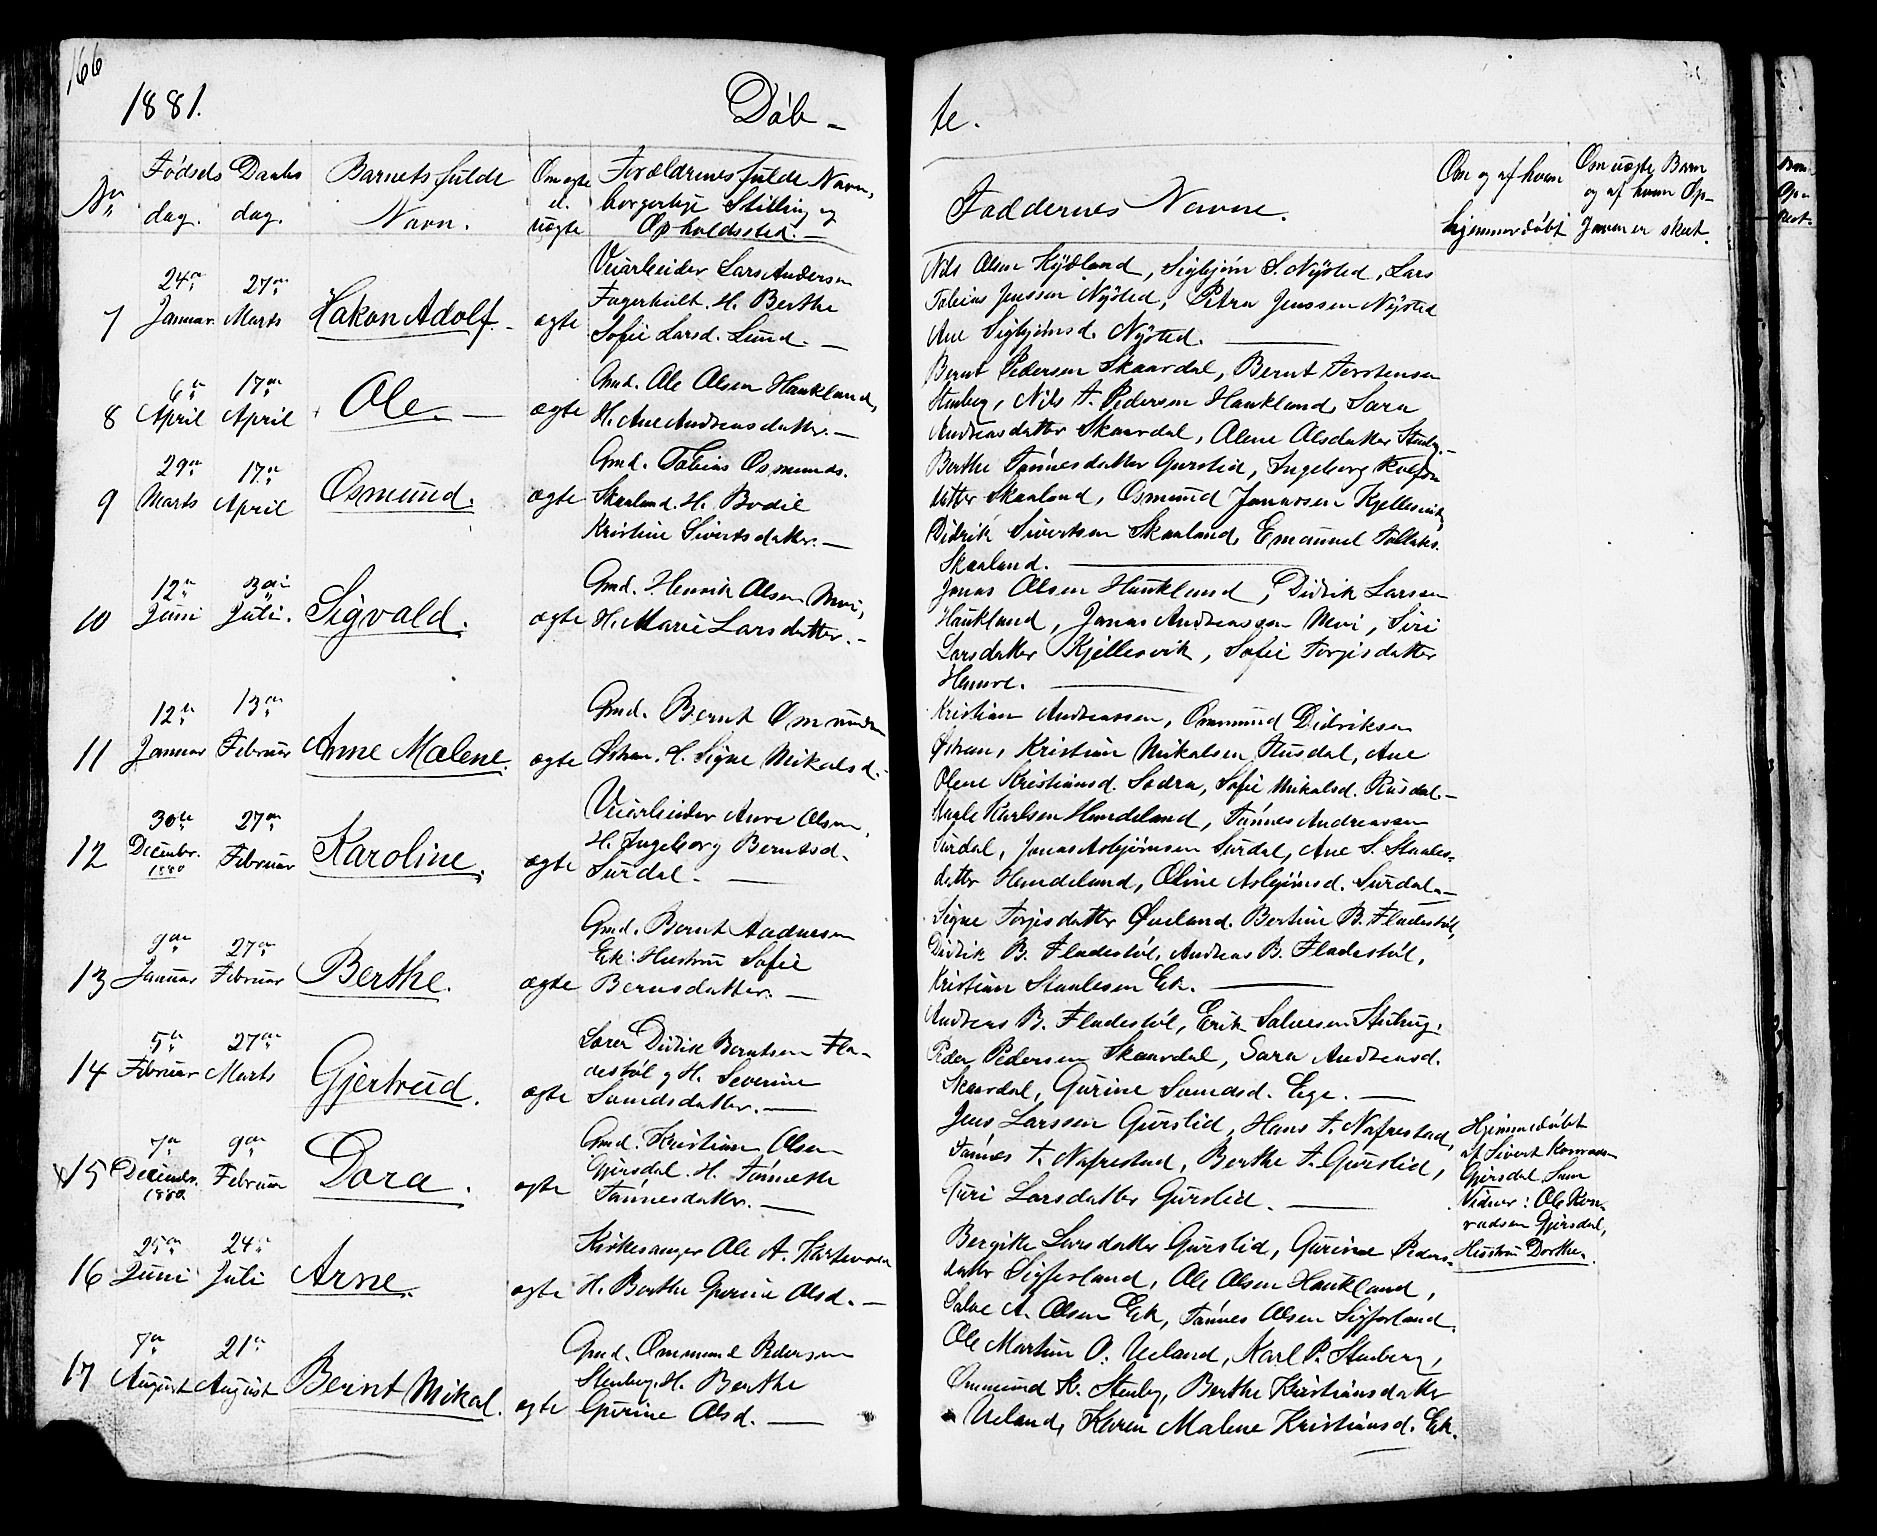 166
1881.
Døb-
te.
No
Fødsels
dag.
Daabs
dag.
Barnets fulde
Navn.
Om ægte
el.
uægte
Forældrenes fulde Navn,
borgerlige Stilling og
Opholdssted.
Faddernes Navne.
Om og af hvem
hjemmedøbt
Om uægte Barn
og af hvem Op-
javnen er skeet.
7
24de
Januar
27de
Marts
Hakon Adolf.
ægte
Veiarbeider Lars Andersen
Fagerhult. H. Berthe
Sofie Larsd. Lund.
Nils Olsen Kydland, Sigbjørn S. Nysted, Lars
Tobias Jenssen Nysted, Petra Jenssen Nysted
Ane Sigbjørnsd. Nysted.
8
6te
April
17de
April
Ole.
ægte
Gmd. Ole Olsen Haukland,
H. Ane Andreasdatter.
Bernt Pedersen Skaardal, Bernt Torstensen
Stenberg, Nils A. Pedersen Haukland, Sara
Andreasdatter Skaardal, Olene Olsdatter Stenbg.
9
29de
Marts
17de
April
Osmund.
ægte
Gmd. Tobias Osmunds.
Skaaland. H. Bodil
Kristine Sivertsdatter.
Berthe Tønnesdatter Gurslid, Ingeborg
datter Skaaland, Osmund Jonassen Kjellesvik,
Didrik Sivertsen Skaaland, Emanuel Tollaks.
Skaaland.
10
12te
Juni
3die
Juli.
Sigvald.
ægte
Gmd. Henrik Olsen Moi,
H. Marie Larsdatter.
Jonas Olsen Haukland, Didrik Larsen
Haukland, Jonas Andreassen Moi, Siri
Larsdatter Kjellesvik, Sofie Torgisdatter
Hamre.
11
12te
Januar
13de
Februar
Anne Malene.
ægte
Gmd. Bernt Omunds.
H. Signe Mikalsd.
Kristian Andreassen, Ommund Didriksen
Kristian Mikalsen Rusdal, Ane
Olene Kristiansd. Sodra, Sofie Mikalsd. Rusdal.
12
30te
Decembr.
1880
27de
Februar
Karoline.
ægte
Veiarbeider Anve Olsen,
H. Ingeborg Berntsd.
Surdal.
Karlsen Handeland, Tønnes Andreassen
Surdal, Jonas Asbjørnsen Surdal, Ane S. Staales-
datter Handeland, Oline Asbjørnsd. Surdal.
13
9de
Januar
27de
Februar
Berthe.
ægte
Gmd. Bernt Aadnesen
Eik. Hustru Sofie
Berntsdatter.
Signe Torgisdatter Øveland. Bertine B. Fladestøl,
Didrik B. Fladestøl, Andreas B. Fladestøl,
Kristian Staalesen Eik.
14
5te
Februar
27de
Marts
Gjertrud.
ægte
Lærer Didrik Berntsen Fla-
destøl og H. Severine
Samdsdatter.
Andreas B. Fladestøl, Erik Salvesen
Peder Pedersen Skaardal, Sara Andreasd.
Skaardal, Gurine Samdsd. Ege.
15
7de
Decembr.
1880.
9de
Februar
Dora.
ægte
Gmd. Kristian Olsen
Gjersdal. H. Tønnette
Tønnesdatter.
Jens Larssen Gurslid, Hans T. Nafrestad,
Tønnes T. Nafrestad, Berthe T. Gurslid,
Guri Larsdatter Gurslid.
Hjemmedøbt
af Sivert Konrads
Gjersdal. Sam
Vidner: Ole Kon-
radsen Gjersdal,
Hustru Dorthe.
16
25de
Juni
24de
Juli
Arne.
ægte
Kirkesanger Ole A.
H. Berthe Gurine Olsd.
Bergitte Larsdatter Gurslid, Gurine Peders-
datter Sigfersland, Ole Olsen Haukland,
Salve A. Olsen Eik, Tønnes Olsen Sigfersland.
17
7de
August
21de
August
Bernt Mikal.
ægte
Gmd. Ommund Pedersen
Stenberg. H. Berthe
Gurine Olsd.
Ole Martin O. Ueland, Karl P. Stenberg,
Ommund K. Stenbg, Berthe Kristiansdatter
Ueland, Karen Malene Kristiansd. Eik.